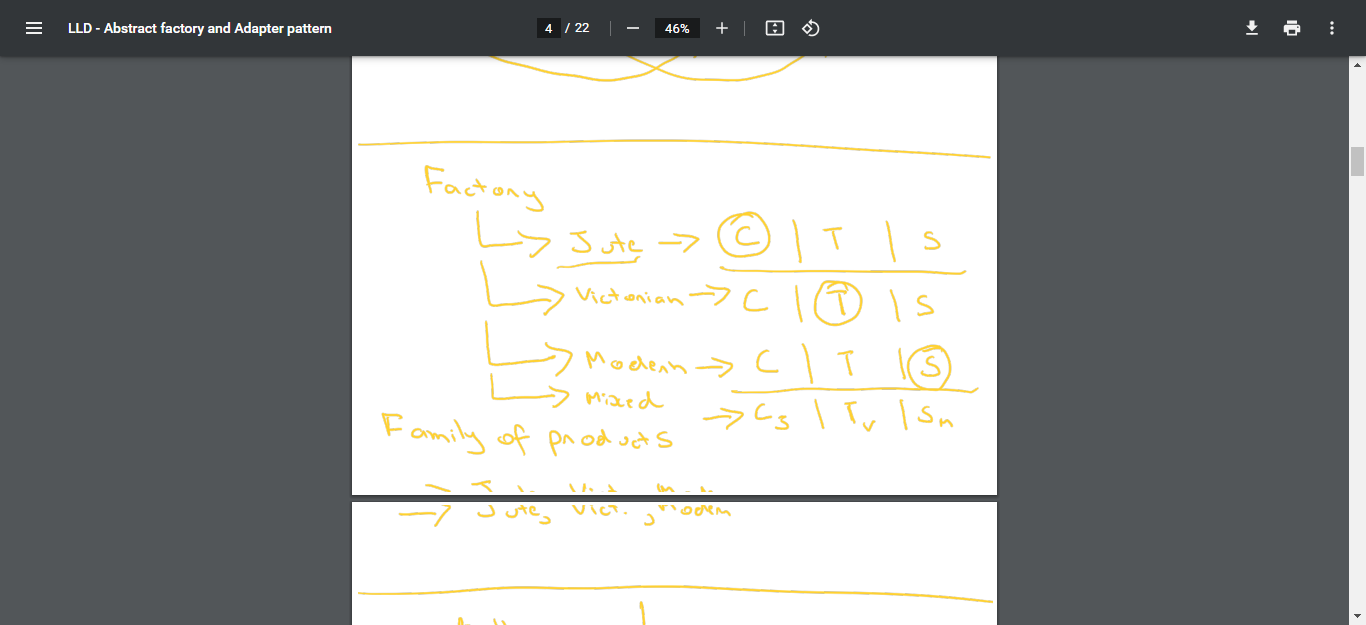 LLD - Abstract factory and Adapter pattern 4 / 22 46%
Factory
Jute → C | T | S
Victorian → C | T | S
Modern → C | T | S
Mixed → CJ | Tv | Sm
Family of products
→ Jute, Vict., Modern